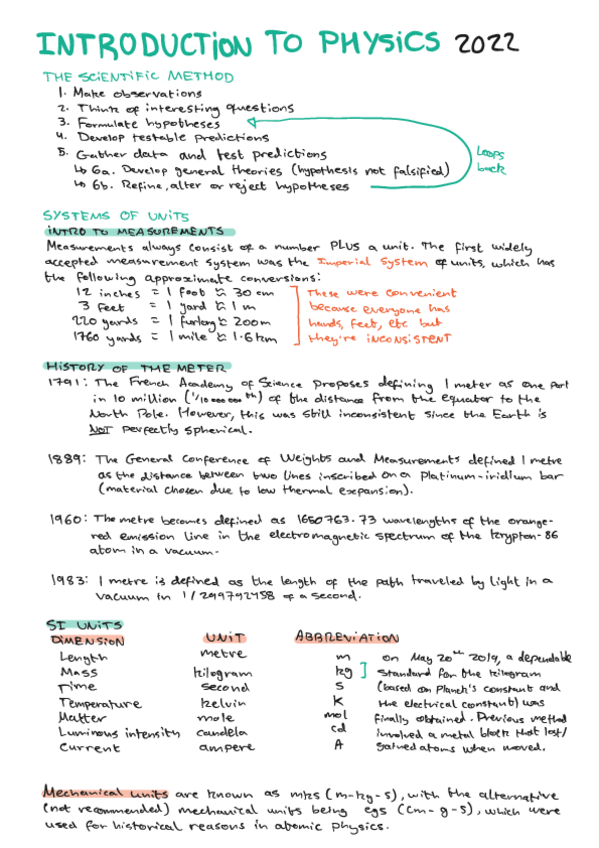 INTRODUCTION TO PHYSICS 2022
THE SCIENTIFIC METHOD
1. Make observations
2. Think of interesting questions
3. Formulate hypotheses
4. Develop testable predictions
5. Gather data and test predictions
↳ 6a. Develop general theories (hypothesis not falsified)
↳ 6b. Refine, alter or reject hypotheses
Loops
back
SYSTEMS OF UNITS
INTRO TO MEASUREMENTS
Measurements always consist of a number PLUS a unit. The first widely
accepted measurement system was the Imperial System of units, which has
the following approximate conversions:
12 inches = 1 foot ≈ 30 cm
3 feet = 1 yard ≈ 1 m
220 yards = 1 furlong ≈ 200m
1760 yards = 1 mile ≈ 1.6km
These were convenient
because everyone has
hands, feet, etc but
they're INCONSISTENT
HISTORY OF THE METER
1791: The French Academy of Science proposes defining 1 meter as one part
in 10 million (1/10 000 000 th) of the distance from the equator to the
North Pole. However, this was still inconsistent since the Earth is
NOT perfectly spherical.
1889: The General Conference of Weights and Measurements defined 1 metre
as the distance between two lines inscribed on a platinum-iridium bar
(material chosen due to low thermal expansion).
1960: The metre becomes defined as 1650763.73 wavelengths of the orange-
red emission line in the electromagnetic spectrum of the krypton-86
atom in a vacuum.
1983: 1 metre is defined as the length of the path traveled by light in a
vacuum in 1/299792458 of a second.
SI UNITS
DIMENSION UNIT ABBREVIATION
Length metre m
Mass kilogram kg
Time second s
Temperature kelvin K
Matter mole mol
Luminous intensity candela cd
Current ampere A
on May 20th 2019, a dependable
standard for the kilogram
(based on Planck's constant and
the electrical constant) was
finally obtained. Previous method
involved a metal block that lost/
gained atoms when moved.
Mechanical units are known as mks (m-kg-s), with the alternative
(not recommended) mechanical units being cgs (cm-g-s), which were
used for historical reasons in atomic physics.